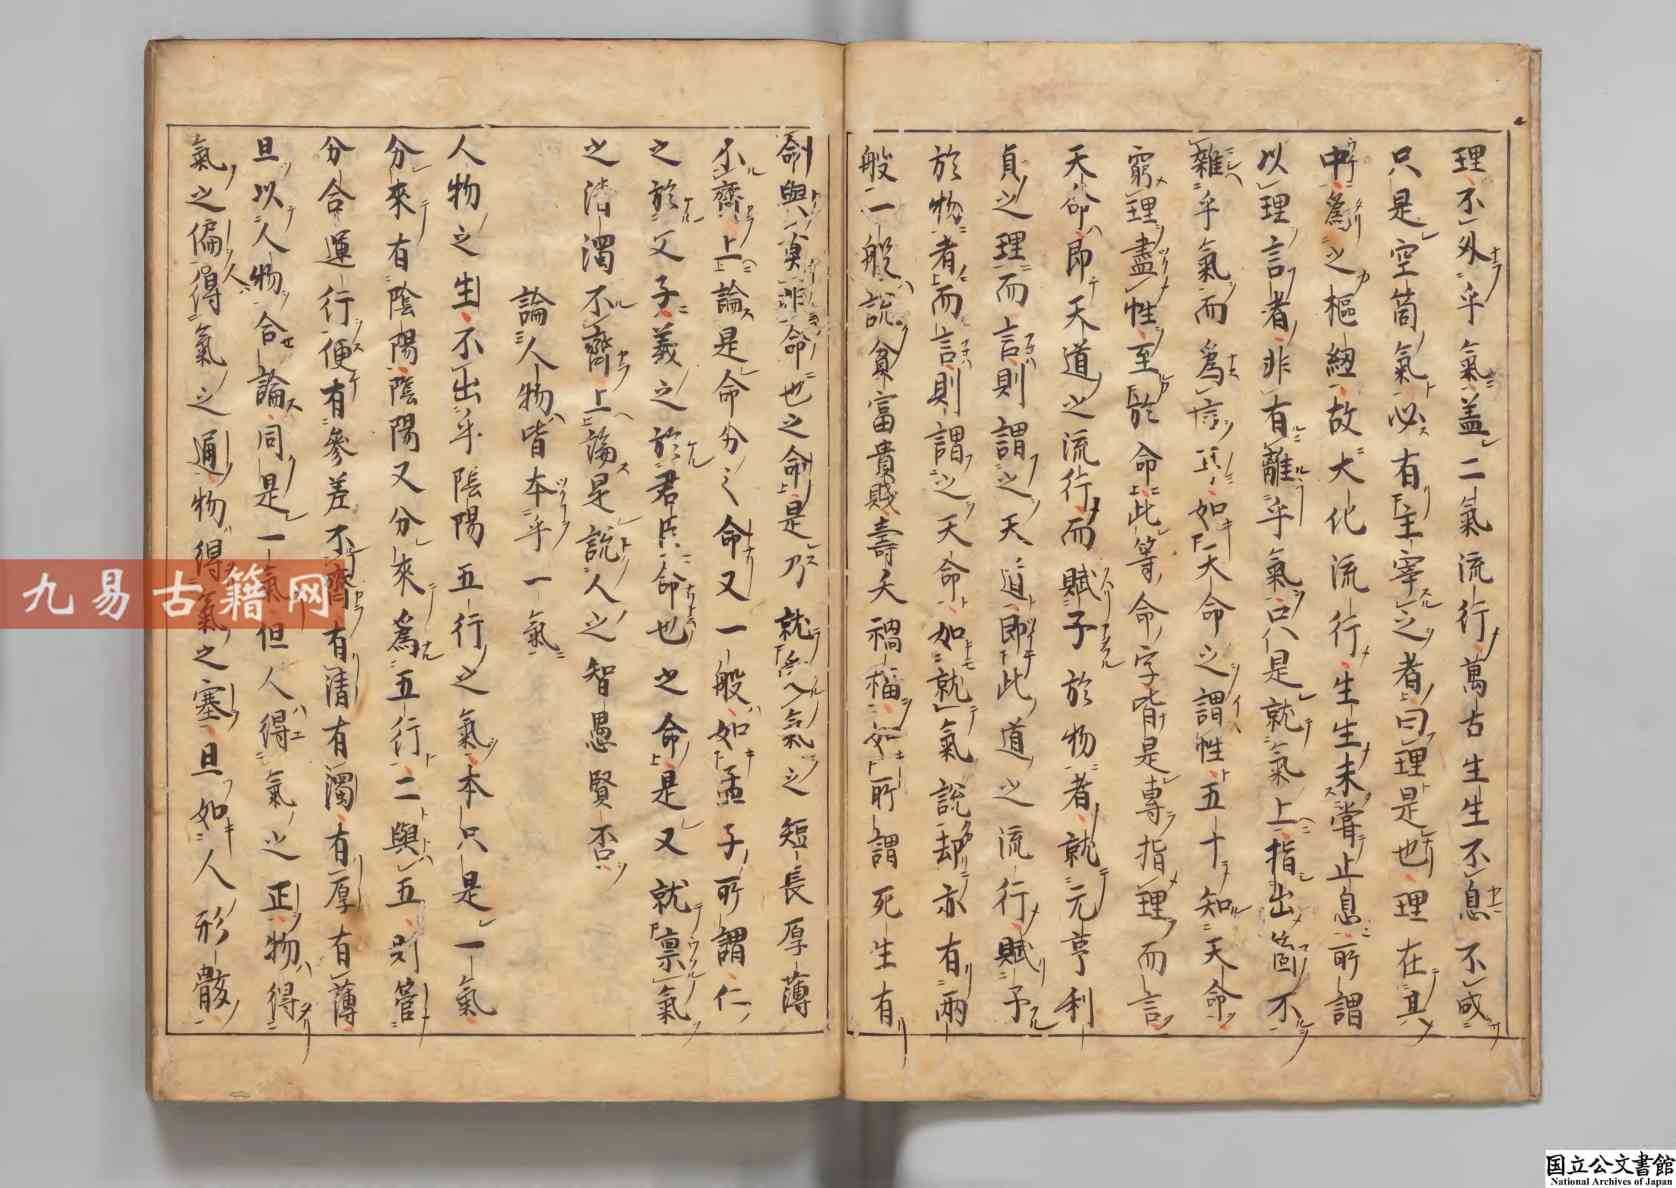 理不外乎氣盖二氣流行萬古生生不息不成
只是空箇氣必有主宰之者曰理是也理在其
中爲之樞紐故大化流行生生未甞止息所謂
以理言者非有離乎氣只是就氣上指出箇不
雜乎氣而爲言耳如天命之謂性五十知天命
窮理盡性至於命此等命字皆是專指理而言
天命即天道之流行而賦予於物者就元亨利
貞之理而言則謂之天道即此道之流行賦予
於物者而言則謂之天命如就氣說却亦有兩
般一般說貧富貴賤壽夭禍福如所謂死生有
命與莫非命也之命是乃就受氣之短長厚薄
不齊上論是命分之命又一般如孟子所謂仁
之於父子義之於君臣命也之命是又就禀氣
之清濁不齊上論是說人之智愚賢否
論人物皆本乎一氣
人物之生不出乎陰陽五行之氣本只是一氣
分來有陰陽陰陽又分來爲五行二與五則管
分合運行便有參差不齊有清有濁有厚有薄
且以人物合論同是一氣但人得氣之正物得
氣之偏人得氣之通物得氣之塞且如人形骸
九易古籍网
国立公文書館
National Archives of Japan